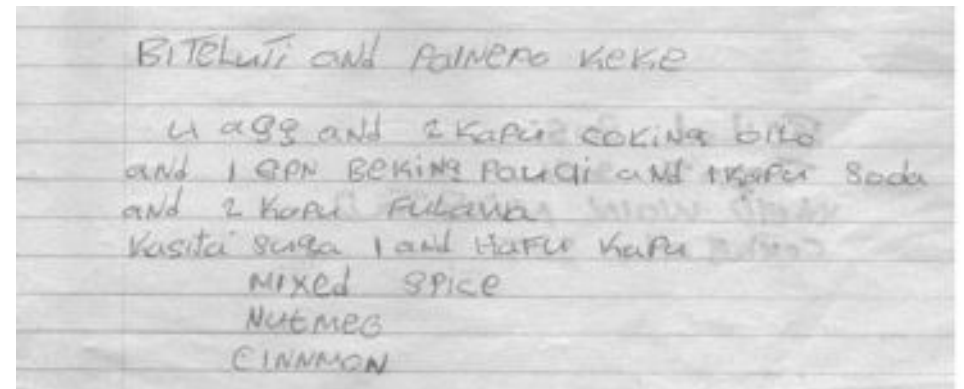 BITELUTI and PAINEPO KEKE
4 agg and 2 Kapu COKING OILO
and 1 SPN BEKING PAUdi and 1 Kapu Soda
and 2 Kapu FULAWA
Kasita Suga 1 and HaFu Kapu
MIXed SPICE
NUTMEG
CINNMON